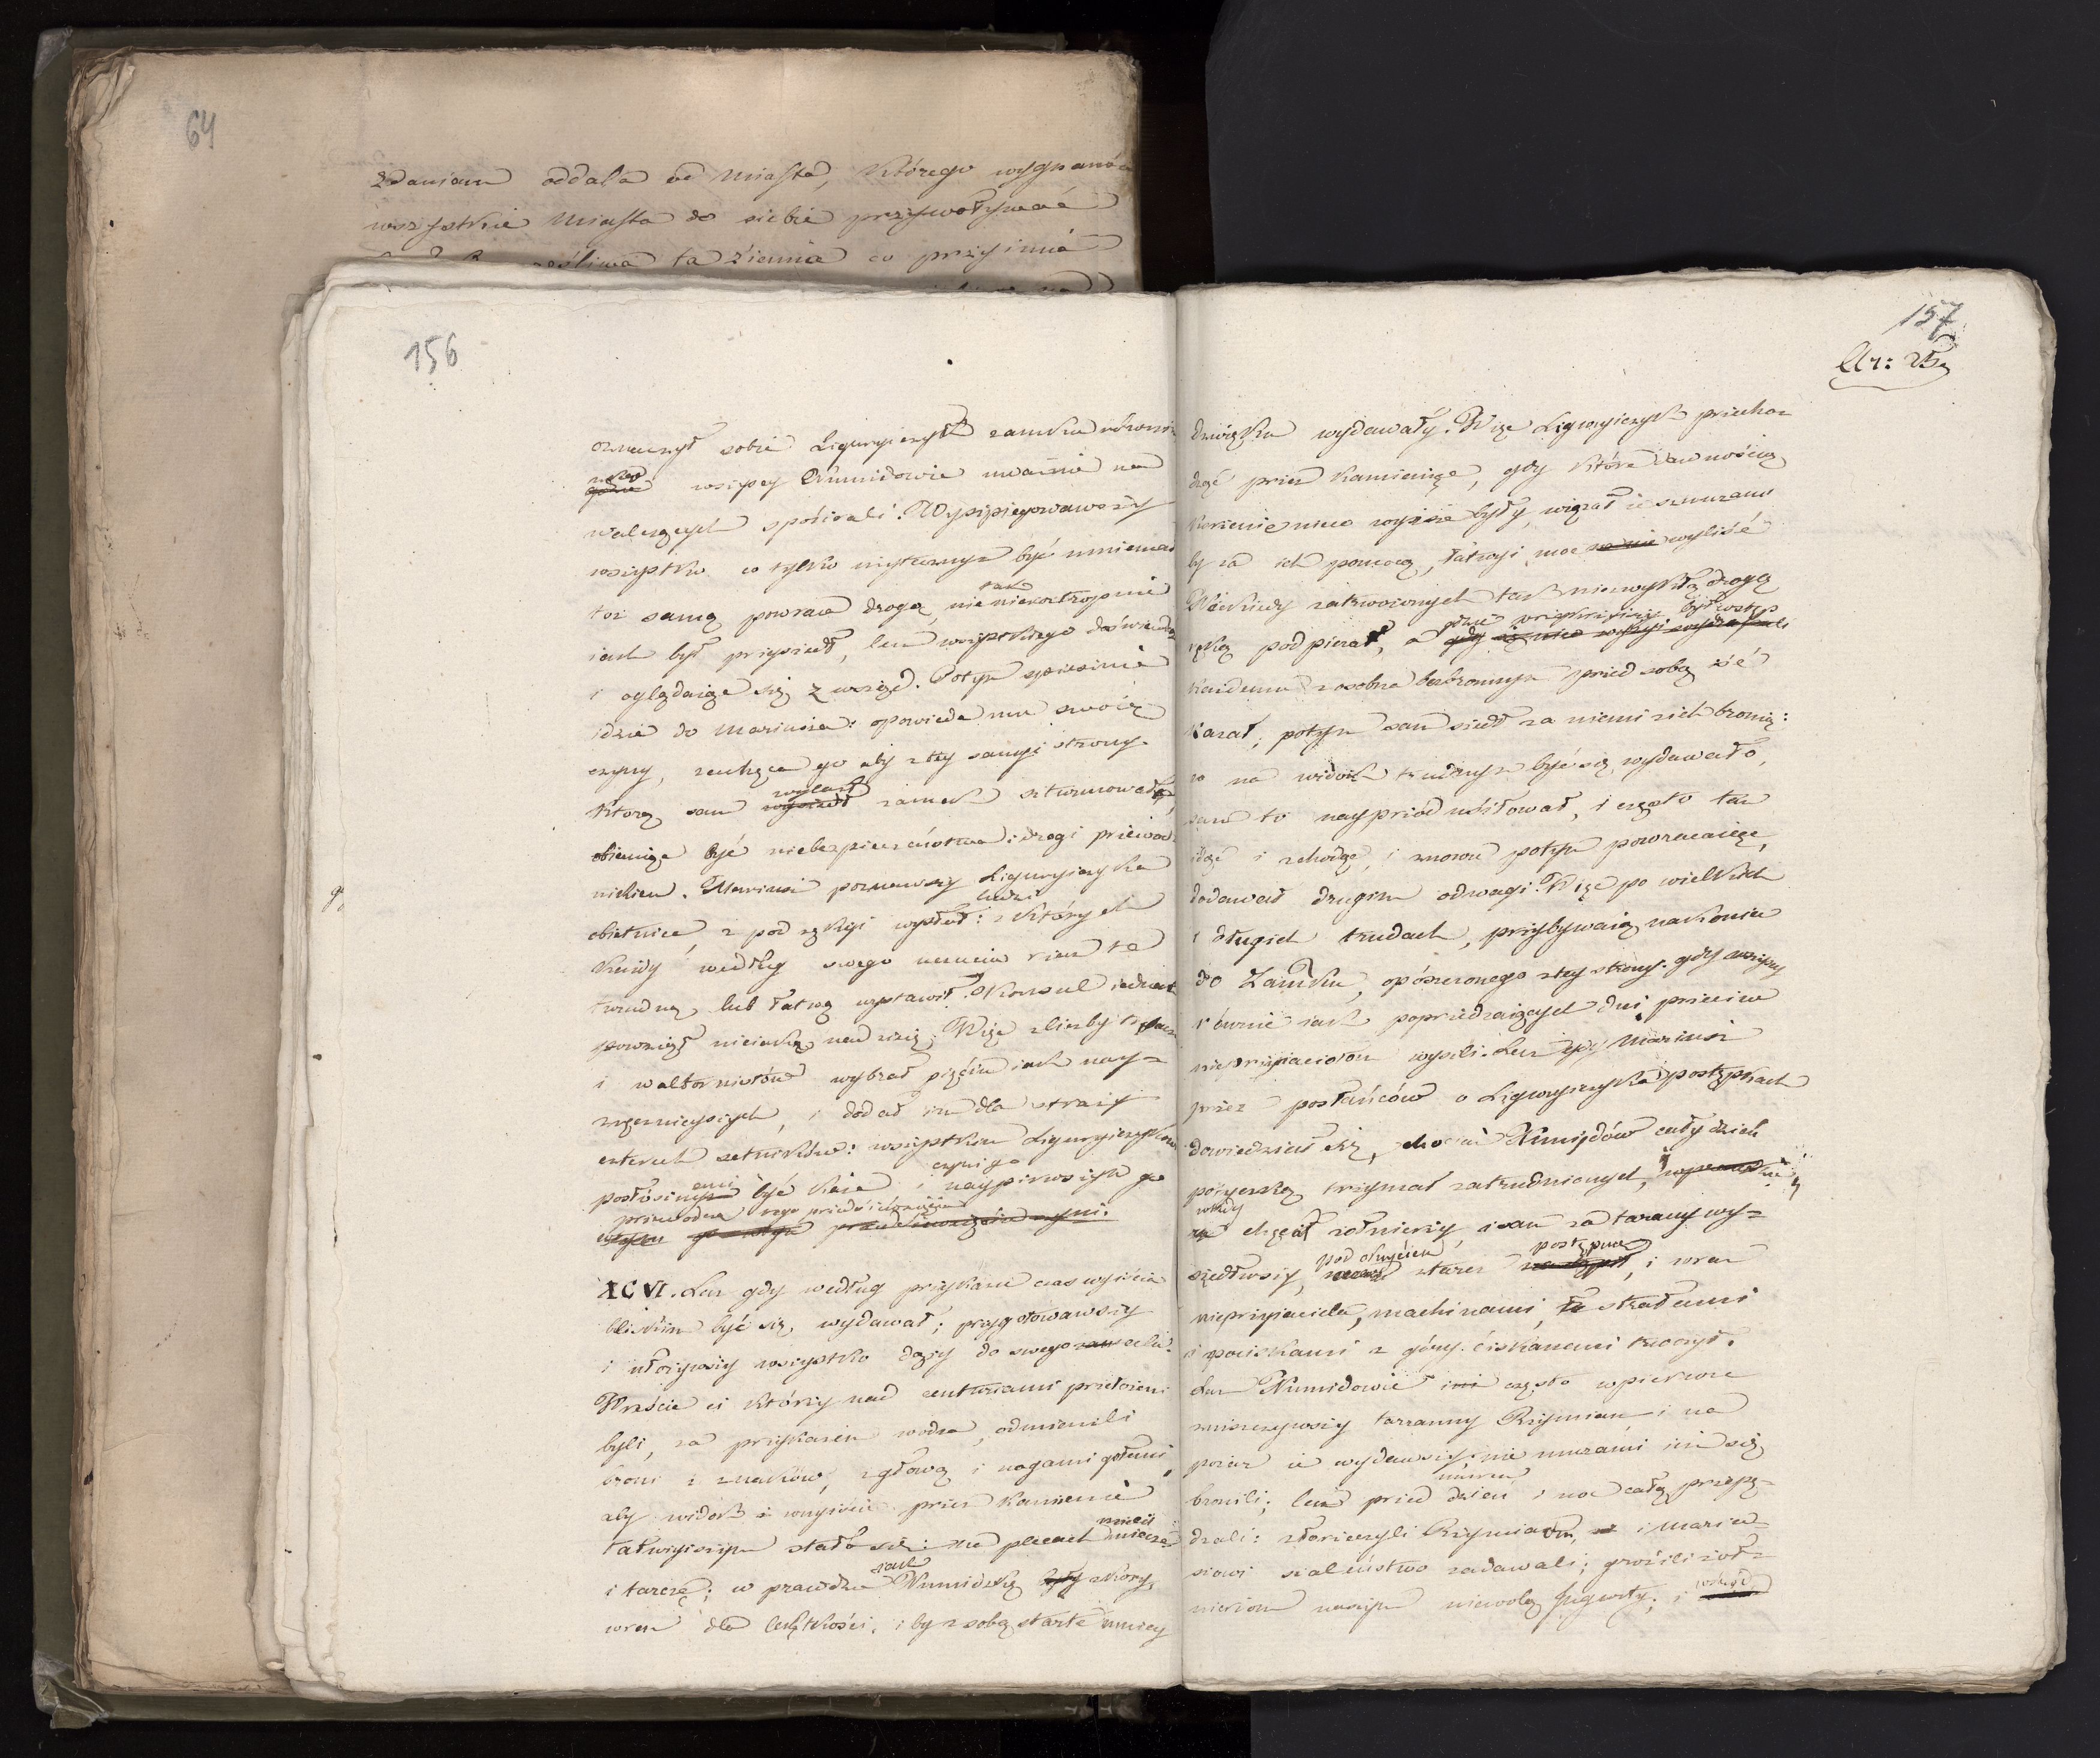 64
zdaniem oddala od Miasta, którego wygnańców
wszystkie Miasta do siebie przyswoływać
ta ziemia co przyimie
156
oznaczył sobie Liguryiczyk zamku równość
wszyscy Numidowie uważnie na
walczących spozirali. Wyszpiegowawszy
wszystko co tylko użytecznym być mniemał
toż samą powraca drogą, nie tak nieroztropnie
iak był przyszedł, lecz wszystkiego doświadcza
i oglądaiąc się z wsząd. Potym spiesznie
idzie do Mariusza: opowiada mu swoie
czyny, zachęca go aby z tey samyi strony
którą sam wylazł zamek szturmował,
obiecuiąc być niebezpieczeństwa i drogi przewod
nikiem. Mariusz poznawszy Liguryiczyka
obietnice, z pod ręki wysłał ludzi: z których
każdy według swego
trudną, lub łatwą wystawił. Konsul iednak
powziął nieiaką nadzieię; Więc z liczby trębaczy
i waltornistów wybrał pięciu iak nay-
zręcznieyszych, i dodał im dla straży
czterech setników: wszystkim Liguryiczykowi
posłusznymi być każe i czyni go
XCVI. Lecz gdy według przykazu czas wyiścia
bliskim być się wydawał; przygotowawszy
i ułożywszy wszystko dąży do swego celu.
Wreście ci którzy nad centuriami przełożeni
byli, za przykazem wodza, odmienili
broni i znaków, z głową i nogami gołemi
aby widok i wnyiście przez kamienie
łatwieyszym stało się: na plecach mieli miecze
i tarczę; w prawdzie iak Numidską skórzaną
wraz dla lekkości, i by z sobą starte mniey
157
Ar: 25
dźwięku wydawały. Więc Liguryiczyk przecho-
dząc przez kamienice, gdy które dawnością
korzenie nieco wyższe były, wiązał ie sznurami
by za ich pomocą, łatwyi moc wyliść
Niekiedy zatrwożonych tak niezwykłą drogą
ręką podpierał, a gdzie przykrzeyszy był wstęp
każdemu z osobna bezbronnym przed sobą iść
kazał; potym sam szedł za niemi z ich bronią:
co na widok trudnym być się wydawało,
sam to nayprzód usiłował, i często tam
idąc i schodząc, i znowu potym powracaiąc,
dodawał drugim odwagi. Więc po wielkich
i długich trudach, przybywaią nakoniec
do Zamku, opószczonego z tey strony: gdy wszyscy
równie iak poprzedzaiących dni przeciw
nieprzyiaciołom wyszli. Lecz gdy Mariusz
przez posłańców o Liguryiczyka postępkach
dowiedział się, chociaż Numidów cały dzień
potyczką trzymał zatrudnionych,
wtedy chęcił żołnierzy, i sam za tarany wy-
szedłwszy, pod okryciem tarcz postępuie, i wraz
nieprzyiaciela, machinami, strzałami
i pociskami z góry ciskanemi trwożył.
Lecz Numidowie często wpierwsze
zniszczywszy tarany Rzymian i na
pożar ie wydawszy; nie murami iuż się
bronili; lecz przed murem dzień i noc całą przepę-
dzali: złorzeczyli Rzymianom, i Mariu-
szowi szaleństwo zadawali; grozili żoł-
nierzom naszym niewolą Jugurty; i